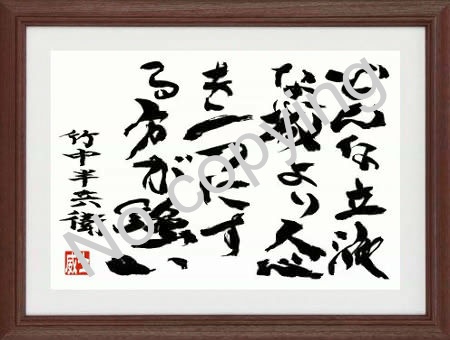 どんな立派
な城より人心
を一つにす
る方が強い
竹中半兵衛
No copying